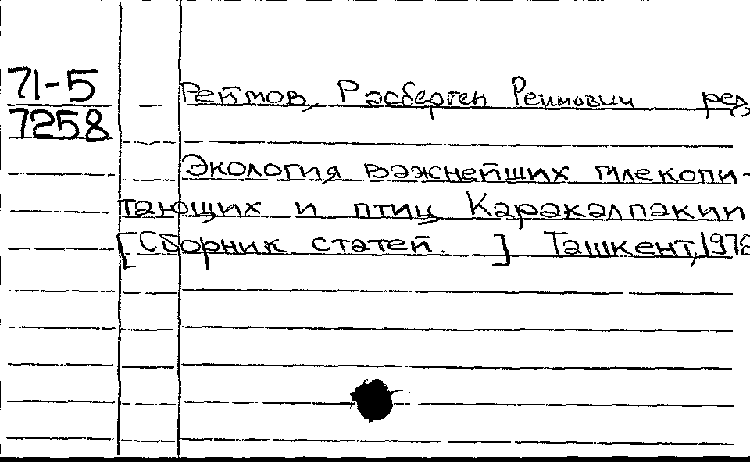 71-5
7258
Реймов, Расберген Реимович ред
Экология важнейших млекопи-
тающих и птиц Каракалпакии
[Сборник статей. ] Ташкент,